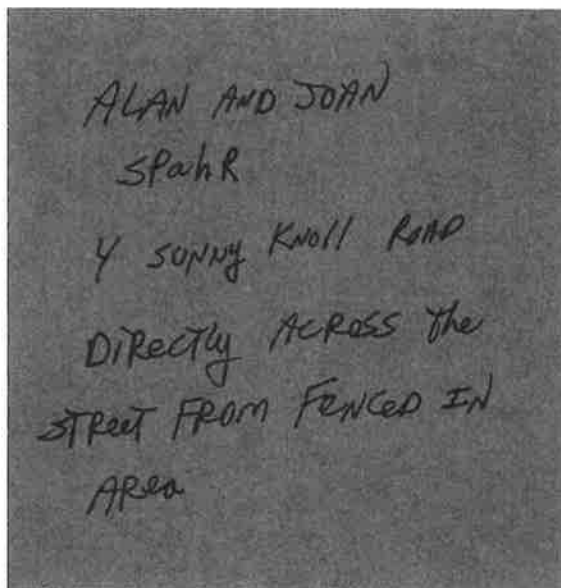 ALAN AND JOAN
SPahR
4 SUNNY KNOll ROAD
DIRectly ACROSS the
STReet FROM FENCED IN
ARea